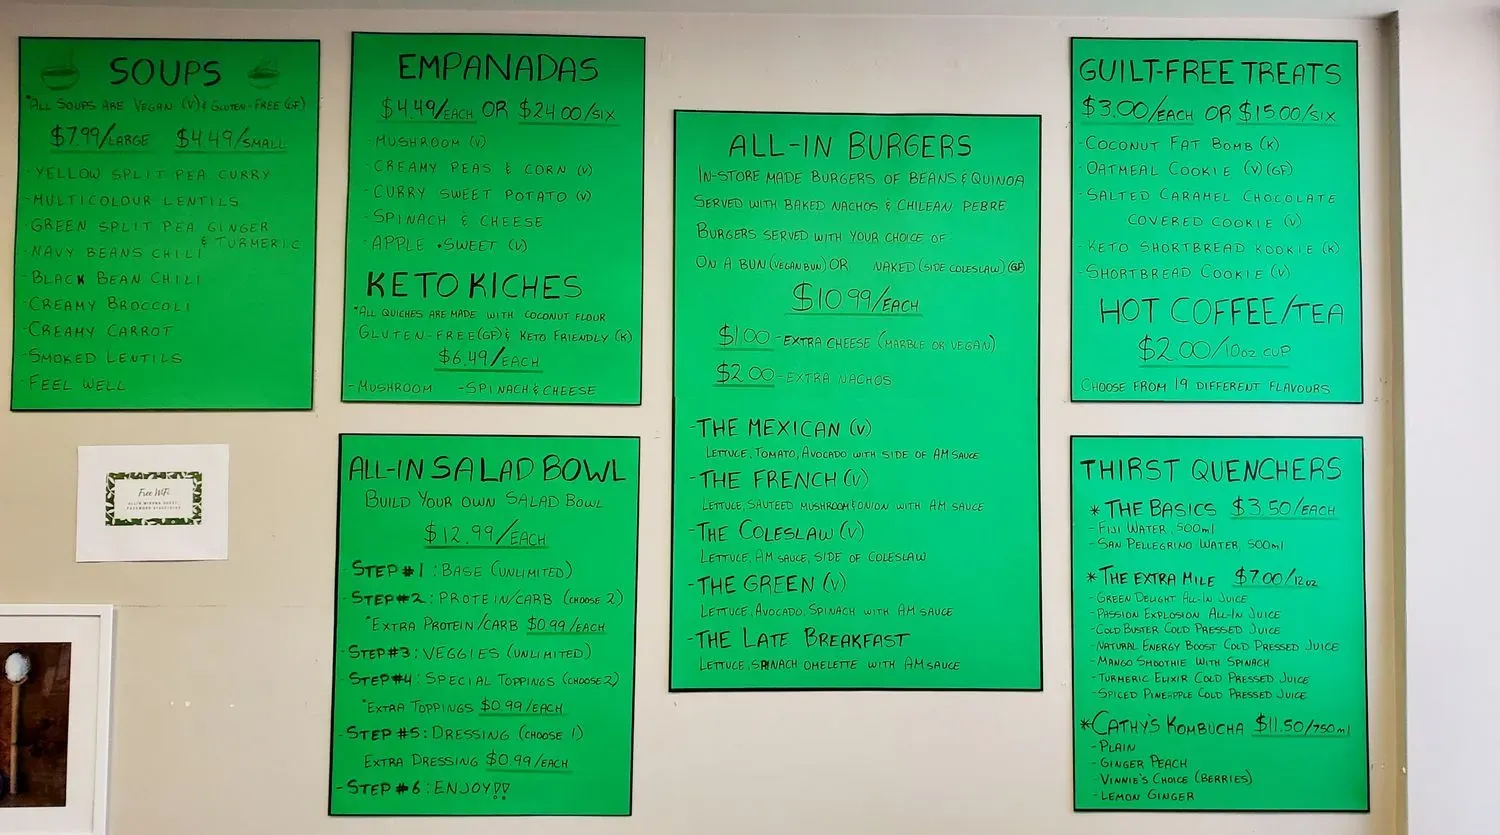 SOUPS
*ALL SOUPS ARE VEGAN (V) & GLUTEN-FREE (GF)
$7.99/LARGE $4.49/SMALL
-YELLOW SPLIT PEA CURRY
-MULTICOLOUR LENTILS
-GREEN SPLIT PEA GINGER
& TURMERIC
-NAVY BEANS CHILI
-BLACK BEAN CHILI
-CREAMY BROCCOLI
-CREAMY CARROT
-SMOKED LENTILS
-FEEL WELL
Free WiFi
EMPANADAS
$4.49/EACH OR $24.00/SIX
-MUSHROOM (V)
-CREAMY PEAS & CORN (V)
-CURRY SWEET POTATO (V)
-SPINACH & CHEESE
-APPLE •SWEET (V)
KETO KICHES
*ALL QUICHES ARE MADE WITH COCONUT FLOUR
GLUTEN-FREE(GF) & KETO FRIENDLY (K)
$6.49/EACH
-MUSHROOM -SPINACH & CHEESE
ALL-IN SALAD BOWL
BUILD YOUR OWN SALAD BOWL
$12.99/EACH
-STEP#1: BASE (UNLIMITED)
-STEP#2: PROTEIN/CARB (CHOOSE 2)
*EXTRA PROTEIN/CARB $0.99/EACH
-STEP#3: VEGGIES (UNLIMITED)
-STEP#4: SPECIAL TOPPINGS (CHOOSE 2)
*EXTRA TOPPINGS $0.99/EACH
-STEP#5: DRESSING (CHOOSE 1)
EXTRA DRESSING $0.99/EACH
-STEP#6: ENJOY!!
ALL-IN BURGERS
IN-STORE MADE BURGERS OF BEANS & QUINOA
SERVED WITH BAKED NACHOS & CHILEAN PEBRE
BURGERS SERVED WITH YOUR CHOICE OF:
ON A BUN (VEGAN BUN) OR NAKED (SIDE COLESLAW) (GF)
$10.99/EACH
$1.00 -EXTRA CHEESE (MARBLE OR VEGAN)
$2.00 -EXTRA NACHOS
-THE MEXICAN (V)
LETTUCE, TOMATO, AVOCADO WITH SIDE OF AM SAUCE
-THE FRENCH (V)
LETTUCE, SAUTEED MUSHROOM & ONION WITH AM SAUCE
-THE COLESLAW (V)
LETTUCE, AM SAUCE, SIDE OF COLESLAW
-THE GREEN (V)
LETTUCE, AVOCADO, SPINACH WITH AM SAUCE
-THE LATE BREAKFAST
LETTUCE, SPINACH OMELETTE WITH AM SAUCE
GUILT-FREE TREATS
$3.00/EACH OR $15.00/SIX
-COCONUT FAT BOMB (K)
-OATMEAL COOKIE (V) (GF)
-SALTED CARAMEL CHOCOLATE
COVERED COOKIE (V)
-KETO SHORTBREAD KOOKIE (K)
-SHORTBREAD COOKIE (V)
HOT COFFEE/TEA
$2.00/10oz CUP
CHOOSE FROM 19 DIFFERENT FLAVOURS
THIRST QUENCHERS
*THE BASICS $3.50/EACH
-FIJI WATER, 500ml
-SAN PELLEGRINO WATER, 500ml
*THE EXTRA MILE $7.00/12oz
-GREEN DELIGHT ALL-IN JUICE
-PASSION EXPLOSION ALL-IN JUICE
-COLD BUSTER COLD PRESSED JUICE
-NATURAL ENERGY BOOST COLD PRESSED JUICE
-MANGO SMOOTHIE WITH SPINACH
-TURMERIC ELIXIR COLD PRESSED JUICE
-SPICED PINEAPPLE COLD PRESSED JUICE
*CATHY'S KOMBUCHA $11.50/750ml
-PLAIN
-GINGER PEACH
-VINNIE'S CHOICE (BERRIES)
-LEMON GINGER